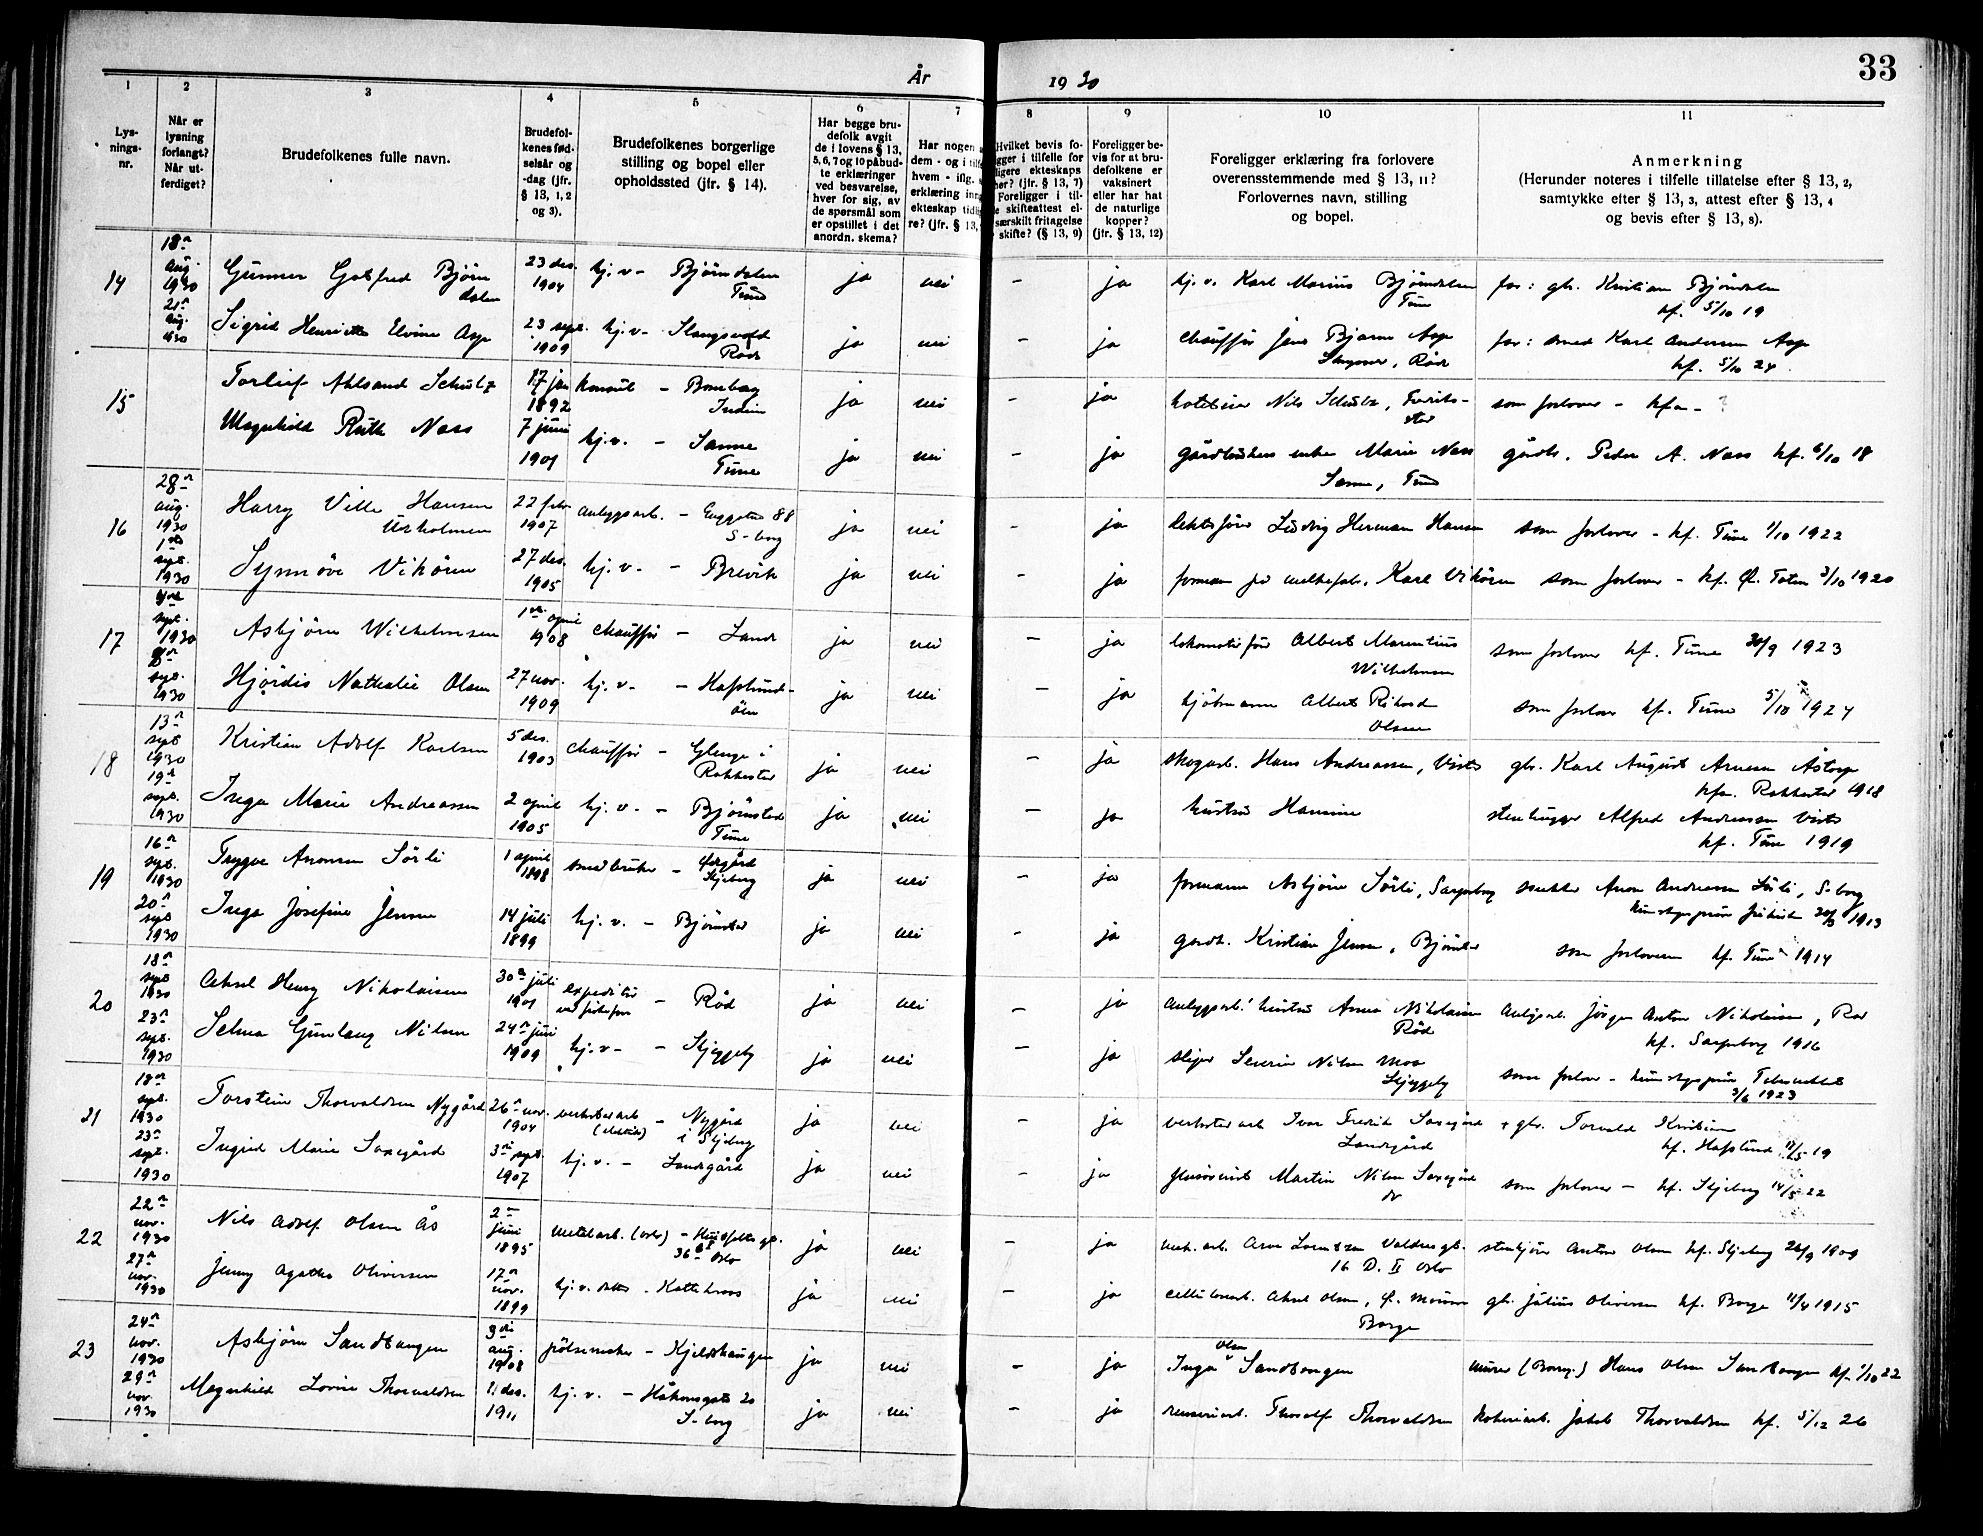 År 1930
33
1
2
3
4
5
6
7
8
9
10
11
Lys-
nings-
nr.
Når er
lysning
forlangt?
Når ut-
ferdiget?
Brudefolkenes fulle navn.
Brudefol-
kenes fød-
selsår og
-dag (jfr.
§ 13, 1, 2
og 3).
Brudefolkenes borgerlige
stilling og bopel eller
opholdssted (jfr. § 14).
Har begge bru-
defolk avgit
de i lovens § 13,
5, 6, 7 og 10 påbud-
te erklæringer
ved besvarelse,
hver for sig, av
de spørsmål som
er opstillet i det
anordn. skema?
Har nogen
dem - og i
hvem - iflg.
erklæring
ekteskap
re? (jfr. § 13,
Hvilket bevis fo-
gger i tilfelle for
ligere ekteskaps
her? (jfr. § 13, 7)
Foreligger i til-
e skifteattest el-
særskilt fritagelse
skifte? (§ 13, 9)
Foreligger be-
vis for at bru-
defolkene er
vaksinert
eller har hat
de naturlige
kopper?
(jfr. § 13, 12)
Foreligger erklæring fra forlovere
overensstemmende med § 13, 11?
Forlovernes navn, stilling
og bopel.
Anmerkning
(Herunder noteres i tilfelle tillatelse efter § 13, 2,
samtykke efter § 13, 3, attest efter § 13, 4
og bevis efter § 13, 8).
14
18n aug. 1930
Gunnar Gotfred Bjørn
dalen
23 des. 1904
hj.v - Bjørndalen
Tune
ja nei - ja
hj. v. Karl Marius Bjørndalen
Tune
far: gbr. Kristian Bjørndalen
kf. 5/10 19
21n aug. 1930
Sigrid Henriette Elvine Asp
23 sept. 1909
hj.v - Slangsvold
Råde
ja nei - ja
chauffør Jens Bjarne Asp
, Råde
far: smed Karl Andersen Asp
kf. 5/10 24
15
Torleif Ahlsand Schultz
17 jan 1892
konsul - Bombay
Indien
ja nei - ja
hoteleier Nils Schultz, Fredrik-
stad
som forlover - kfa - ?
Magnhild Ruth Næss
7 juni 1901
hj.v. - Sanne
Tune
ja nei - ja
gårdbrukers enke Marie Næss
Sanne, Tune
gårdb. Peder A. Næss kf. 6/10 18
16
28n aug. 1930
Harry Ville Hansen
Urholmen
22 febr 1907
anleggsarb. - 88
S-borg
ja nei - ja
lektefører Ludvig Herman Hansen
som forlover - kf. Tune 1/10 1922
1ste sept. 1930
Synnøve Vikøren
27 des. 1905
hj.v. - Brevik
ja nei - ja
formann på melkefab. Karl Vikøren
som forlover - kf. Ø. Toten 3/10 1920
17
sept. 1930
Asbjørn Wilhelmsen
1ste april 1908
chauffør - Lande
ja nei - ja
lokomotivfører Albert Marentius
Wilhelmsen
som forlover kf. Tune 30/9 1923
sept. 1930
Hjørdis Nathalie Olsen
27 nov. 1909
hj. v. - Hafslund-
øen
ja nei - ja
kjøbmann Albert Rikard
Olsen
som forlover kf. Tune 5/10 1924
18
13n sept 1930
Kristian Adolf Karlsen
5 des. 1903
chauffør - Glenge i
Rakkestad
ja nei - ja
skogarb. Hans Andreassen, Vister
gbr. Karl August Arnesen Åstorp
kfa. Rakkestad 1918
19n sept. 1930
Inga Marie Andreassen
2 april 1905
hj. v. - Bjørnstad
Tune
ja nei - ja
hustru Hansine
stenhugger Alfred Andreassen Vister
kf. Tune 1919
19
16n sept. 1930
Trygve Aronsen Sørli
1 april 1898
småbruker - Østgård
Skjeberg
ja nei - ja
formann Asbjørn Sørli, Sarpsborg
snekker Aron Andreassen Sørli, S-borg
1913
20n sept 1930
Inga Josefine Jensen
14 juli 1899
hj. v. - Bjørnstad
ja nei - ja
gårdb. Kristian Jensen, Bjørnstad
som forloveren kf. Tune 1914
20
18n sept 1930
Aksel Henry Nikolaisen
30n juli 1901
ekspeditør
- Råd
ja nei - ja
anleggsarb. hustru Anna Nikolaisen
Råd
anlgsarb. Jørgen Anton Nikolaisen, Råd
kf. Sarpsborg 1916
23n sept. 1930
Selma Gunlaug Nilsen
24n juni 1909
hj.v - - Skjeggeby
ja nei - ja
sliper Severin Nilsen Moa
Skjeggeby
som forlover -
3/6 1923
21
18n sept. 1930
Torstein Thorvaldsen Nygård
26n nov. 1904
verkstedarb
- Nygård
i Skjeberg
ja nei - ja
verkstedarb Ivar Fredrik Saxegård
Landsgård
+ gbr. Torvald Kristian
kf. Hafslund 11/5 19
23n sept. 1930
Ingrid Marie Saxegård
3n sept 1907
hj.v. - Landsgård
ja nei - ja
Martin Nilsen Saxegård
do
som forlover - kf. Skjeberg 14/5 22
22
22n nov. 1930
Nils Adolf Olsen Ås
2n juni 1895
metalarb. (Oslo) - gt.
36 Oslo
ja nei - ja
mek. arb. Arne Lorentzen Valdresgt.
16 D. II Oslo
stenhugger Anton Olsen kf. Skjeberg 26/9 1909
27n nov. 1930
Jenny Agathe Oliversen
17n nov. 1899
hj.v. datter - Kattekroas
ja nei - ja
cellulosearb. Aksel Olsen, Ø. Moum
Borge
gb. Julius Oliversen kf. Borge 11/4 1915
23
24n nov. 1930
Asbjørn Sandtangen
3die aug. 1908
pølsemaker - Kjeldshaugen
ja nei - ja
Inga Olsen Sandtangen
murer (Borreg.) Hans Olsen Sandtangen kf. 1/10 22
29n nov. 1930
Magnhild Lovise Thorvaldsen
11 des. 1911
hj. v. - Håkonsgate 20
S-borg
ja nei - ja
renseriarb. Thorolf Thorvaldsen
kokeriarb. Jakob Thorvaldsen kf. 5/12 26